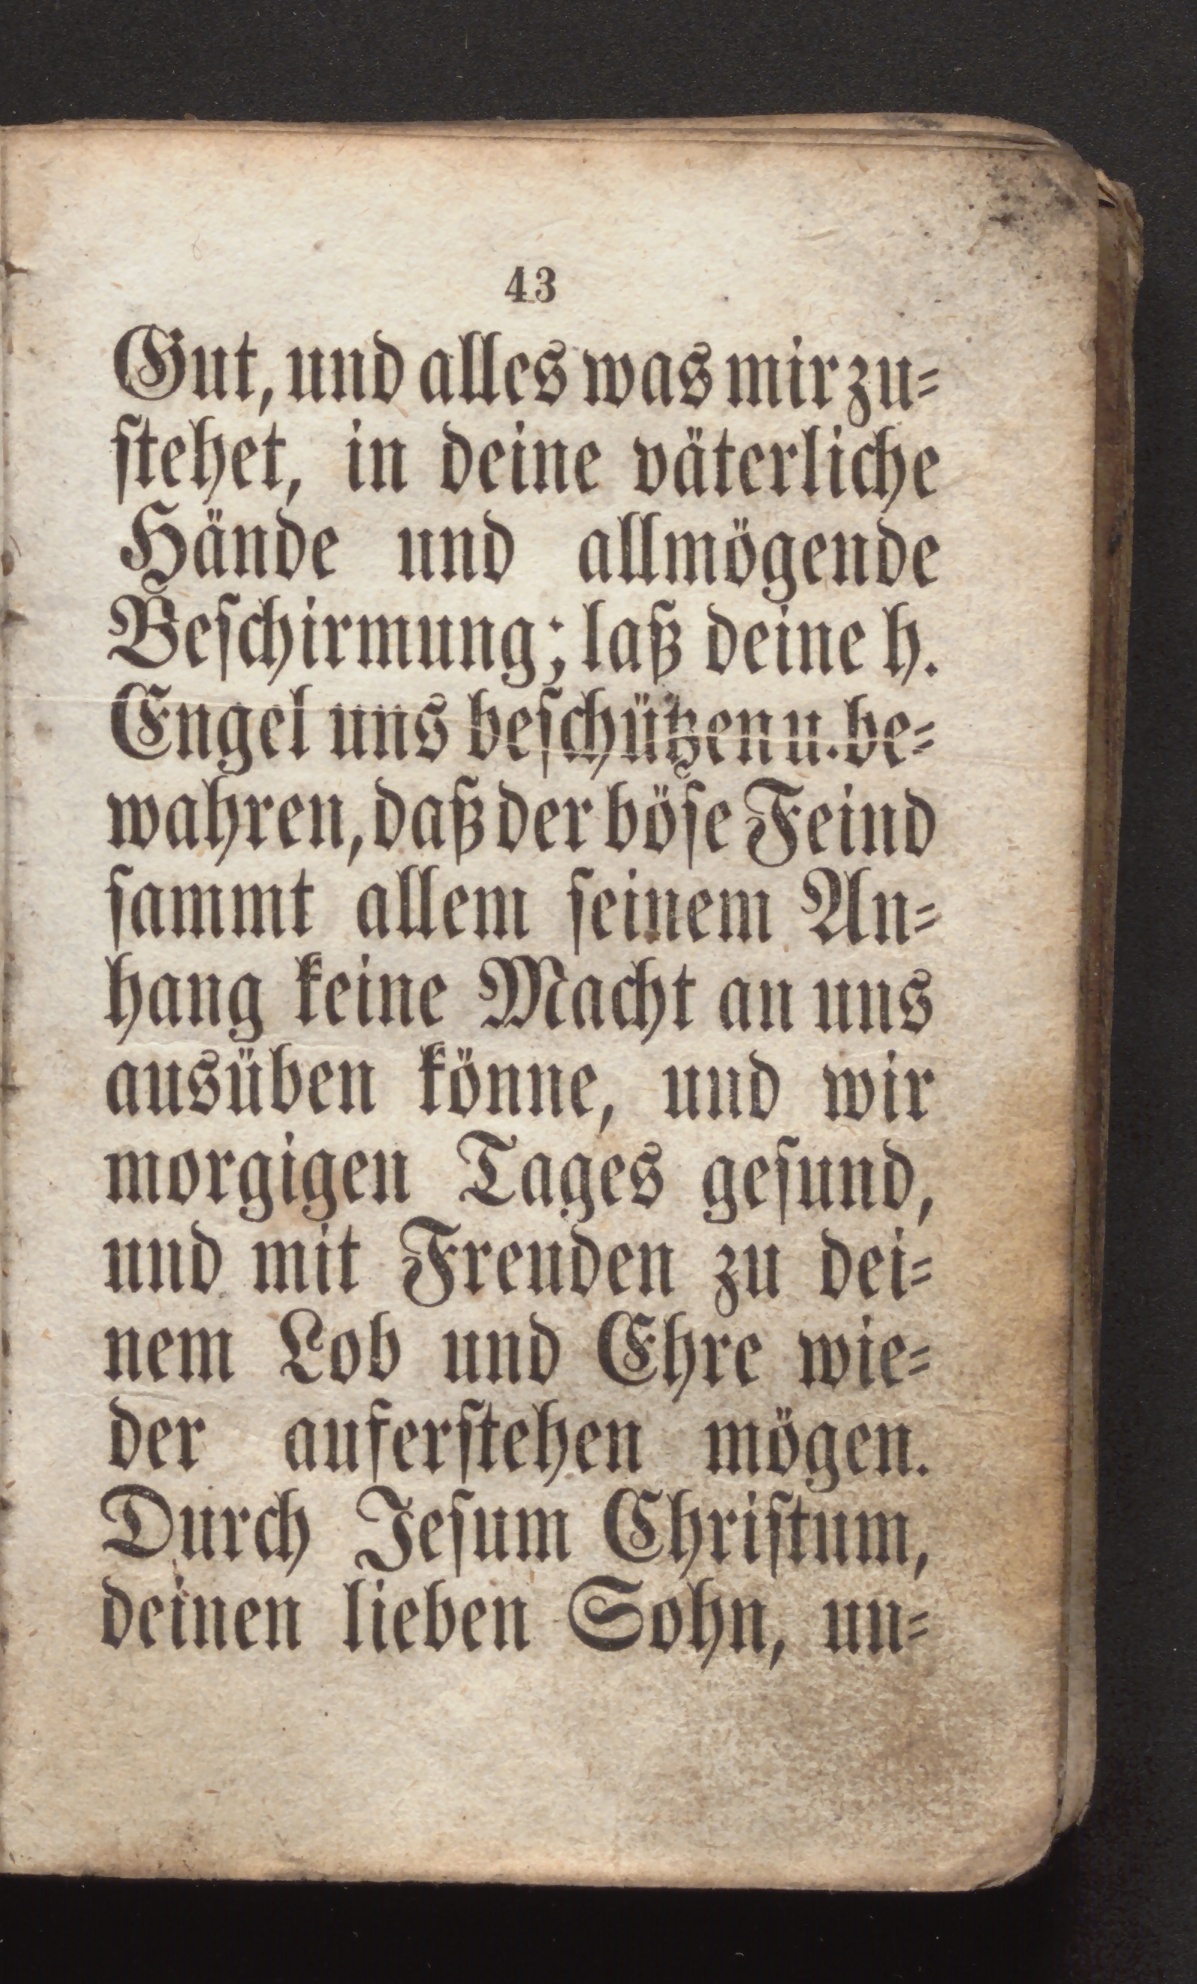 43
Gut, und alles was mir zu-
stehet, in deine väterliche
Hände und allmögende
Beschirmung; laß deine h.
Engel uns beschützen u. be-
wahren, daß der böse Feind
sammt allem seinem An-
hang keine Macht an uns
ausüben könne, und wir
morgigen Tages gesund,
und mit Freuden zu dei-
nem Lob und Ehre wie-
der auferstehen mögen.
Durch Jesum Christum,
deinen lieben Sohn, un-